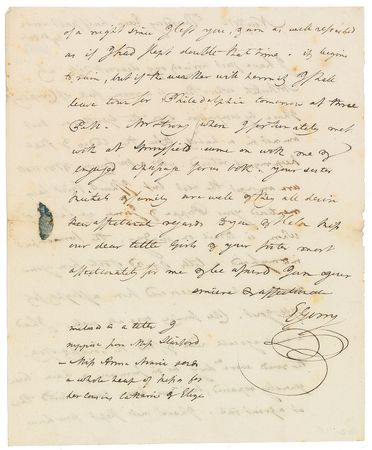 of a night since I left you, & am as well refreshed
as if I had slept double that time. it begins
to rain, but if the weather will permit I shall
leave town for Philadelphia tomorrow at three
P.M. Mr when I fortunately met
with at Springfield came on with me &
engaged passage for us both. your sister
& family are well & they all desire
their affectionate regards to you & kiss
our dear little Girls & your sister most
affectionately for me & be assured I am your
sincere & affectionate
E Gerry
inclosed is a letter I
suppose from Miss
Miss Anna Maria sends
a whole heap of kisses for
her cousins Catharine & Eliza